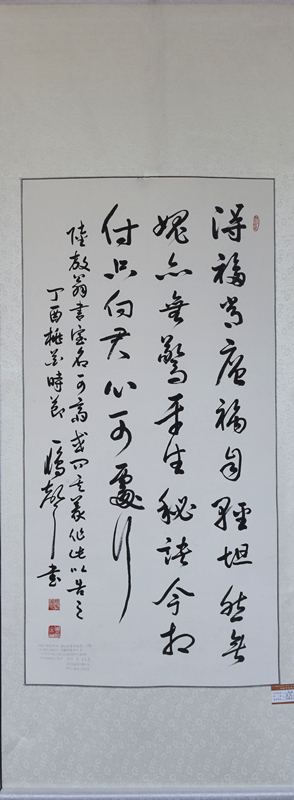 得福常廉禍自輕坦然無
媿亦無驚平生秘訣今相
付只向君心可處行
陸放翁書室名可齋或問其義作此以告之
丁酉桃花時節 書